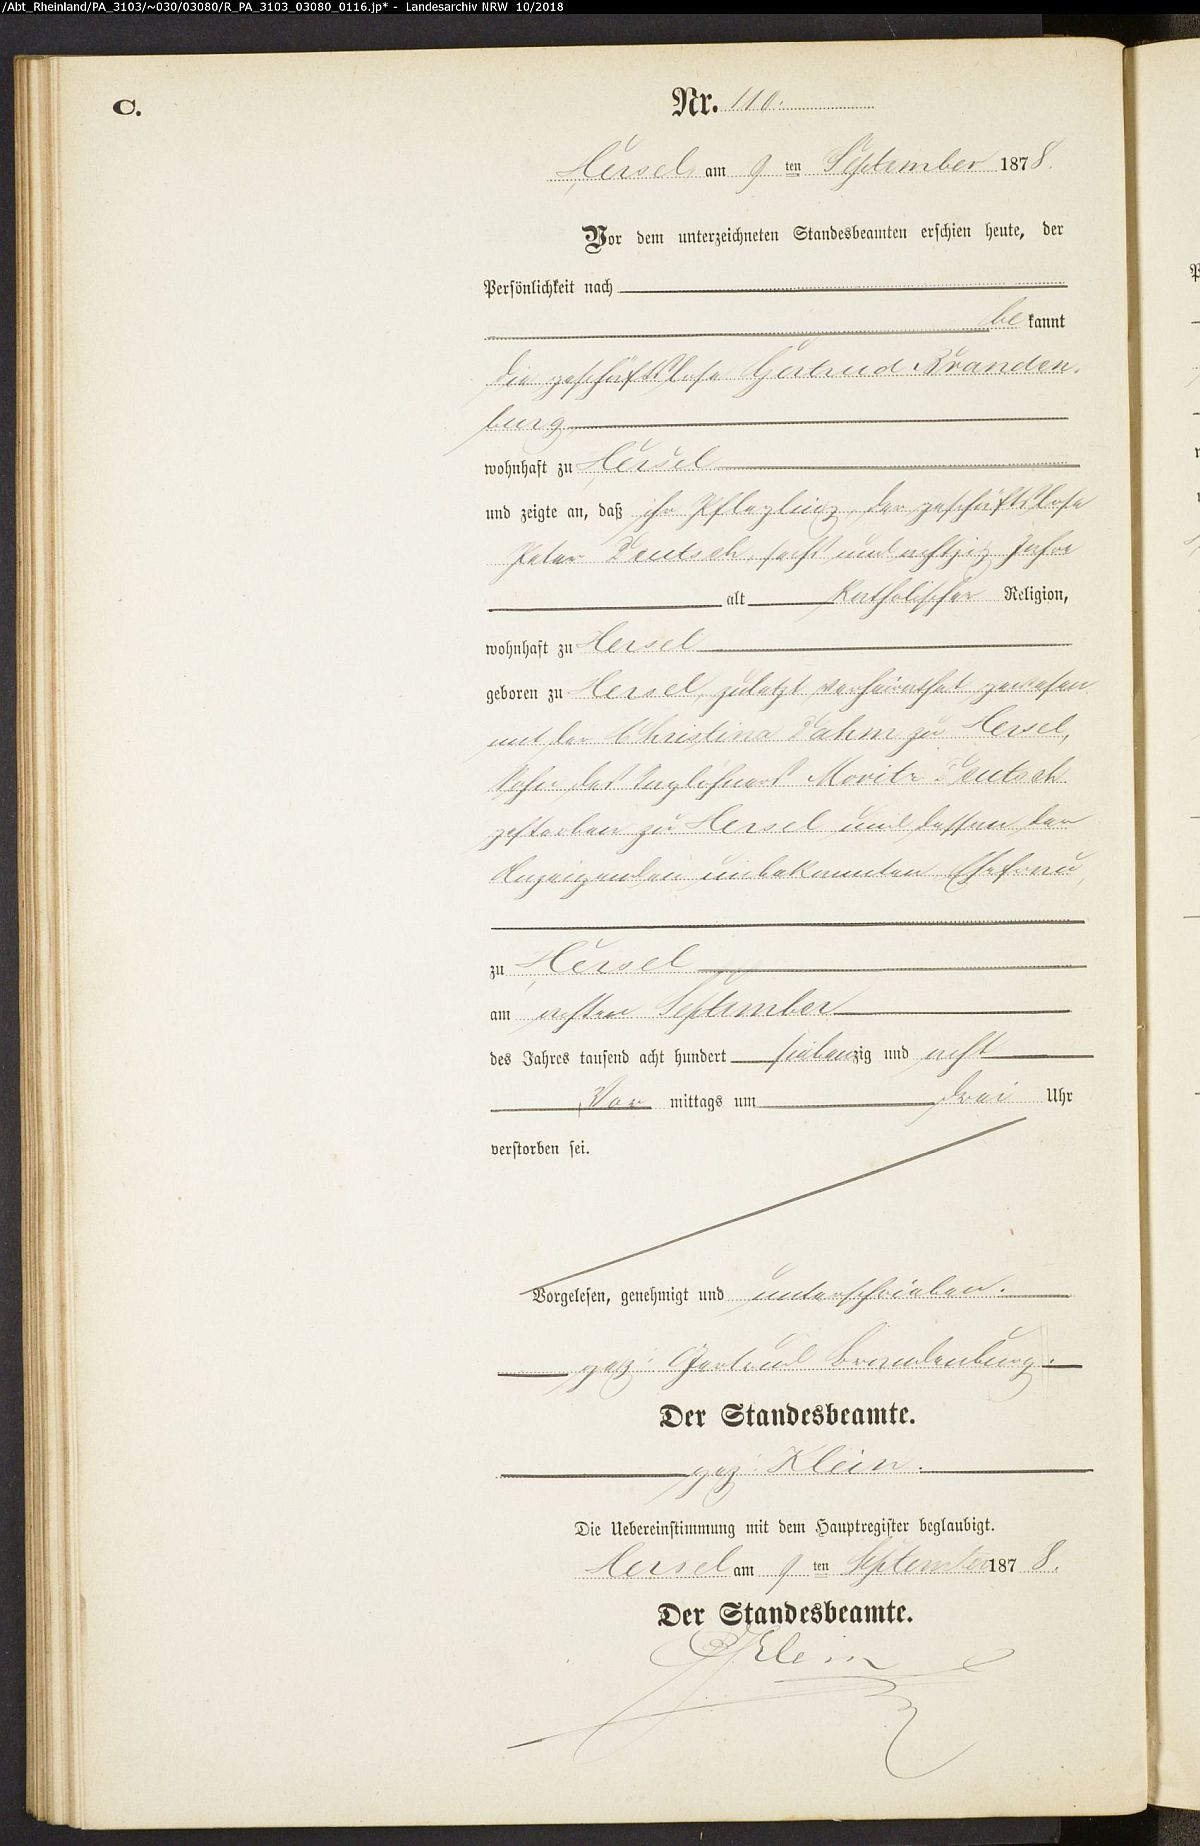 /Abt_Rheinland/PA_3103/~030/03080/R_PA_3103_03080_0116.jp* - Landesarchiv NRW 10/2018
C.
Nr. 110.
Hersel am 9 ten September 1878.
Vor dem unterzeichneten Standesbeamten erschien heute, der
Persönlichkeit nach
be kannt
die geschäftslose Gertrud Branden-
burg,
wohnhaft zu Hersel
und zeigte an, daß ihr Pflegling, der geschäftslose
Peter Deutsch, sechs und achtzig Jahre
alt katholischer Religion,
wohnhaft zu Hersel
geboren zu Hersel, zuletzt verheirathet gewesen
mit der Christina Dahm zu Hersel,
Sohn des Taglöhners Moritz Deutsch
gestorben zu Hersel und dessen der
Anzeigenden unbekannten Ehefrau,
zu Hersel
am achten September
des Jahres tausend acht hundert siebenzig und acht
Vor mittags um drei Uhr
verstorben sei.
Vorgelesen, genehmigt und unterschrieben.
gez: Gertrud Brandenburg.
Der Standesbeamte.
gez: Klein.
Die Uebereinstimmung mit dem Hauptregister beglaubigt.
Hersel am 9 ten September 1878.
Der Standesbeamte.
Klein